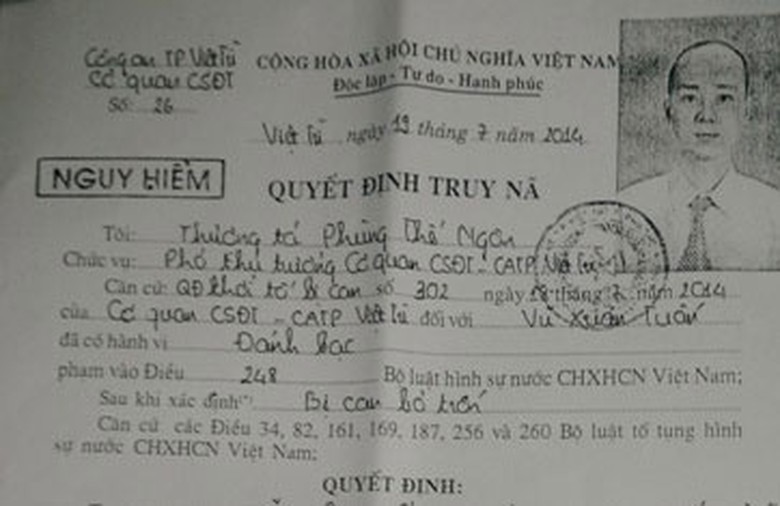 Công an TP Việt Trì
CỘNG HÒA XÃ HỘI CHỦ NGHĨA VIỆT NAM
Cơ quan CSĐT
Độc lập - Tự do - Hạnh phúc
Số: 26
Việt Trì ngày 19 tháng 7 năm 2014
NGUY HIỂM
QUYẾT ĐỊNH TRUY NÃ
Tôi: Thượng tá Phùng Thế Ngọc
Chức vụ: Phó thủ trưởng Cơ quan CSĐT - CATP Việt Trì
Căn cứ: QĐ khởi tố bị can số 302 ngày tháng 7 năm 2014
của Cơ quan CSĐT - CATP Việt Trì đối với Vũ Xuân Tuấn
đã có hành vi Đánh bạc
phạm vào Điều 248 Bộ luật hình sự nước CHXHCN Việt Nam;
Sau khi xác định(*) Bị can bỏ trốn
Căn cứ các Điều 34, 82, 161, 169, 187, 256 và 260 Bộ luật tố tụng hình
sự nước CHXHCN Việt Nam;
QUYẾT ĐỊNH: